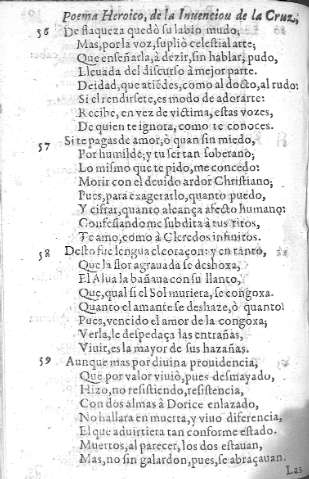 Poema Heroico, de la Inuencion de la Cruz,
56 De flaqueza quedò su labio mudo,
Mas, por la voz, supliò celestial arte;
Que enseñarla, à dezir, sin hablar, pudo,
Lleuada del discurso à mejor parte.
Deidad, que atiẽdes, como al docto, al rudo:
Si el rendirsete, es modo de adorarte:
Recibe, en vez de victima, estas vozes,
De quien te ignora, como te conoces.
57 Si te pagas de amor, ò quan sin miedo,
Por humilde; y tu ser tan soberano;
Lo mismo que te pido, me concedo:
Morir con el deuido ardor Christiano;
Pues, para exagerarlo, quanto puedo,
Y cifrar, quanto alcança afecto humano:
Confesiando me subdita à tus ritos,
Te amo, como à Cleredos infinitos.
58 Desto fue lengua el coraçon: y en tanto,
Que la flor agrauada se deshoxa,
El Alua la bañaua con su llanto,
Que, qual si el Sol muriera, se congoxa.
Quanto el amante se deshaze, ò quanto!
Pues, vencido el amor de la congoxa;
Verla, le despedaça las entrañas,
Viuir, es la mayor de sus hazañas.
59 Aunque mas por diuina prouidencia,
Que por valor viuiò, pues desmayado,
Hizo, no resistiendo, resistencia,
Con dos almas à Dorice enlazado,
No hallara en muerta, y viuo diferencia,
El que aduirtiera tan conforme estado.
Muertos, al parecer, los dos estauan,
Mas, no sin galardon, pues, se abraçauan.
Las